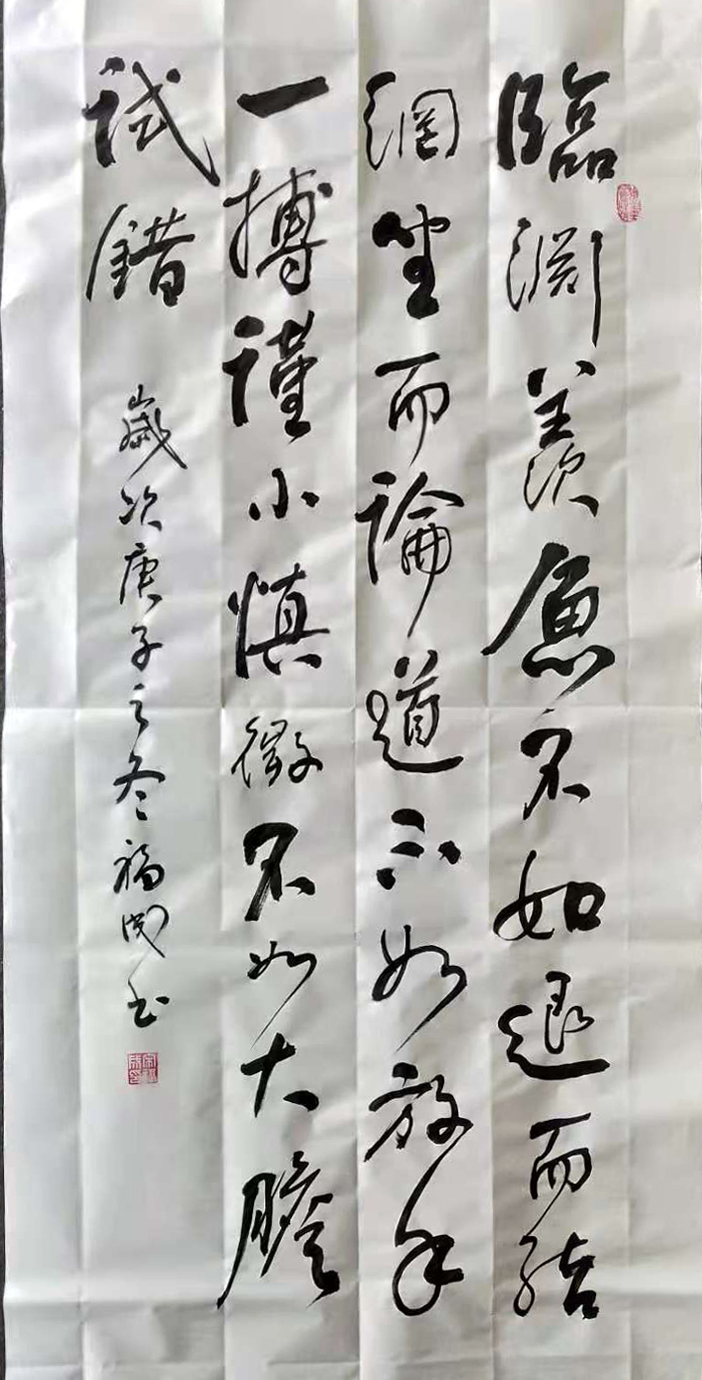 臨淵羨魚不如退而結
網坐而論道不如放手
一搏謹小慎微不如大膽
試錯
歲次庚子之冬福成书